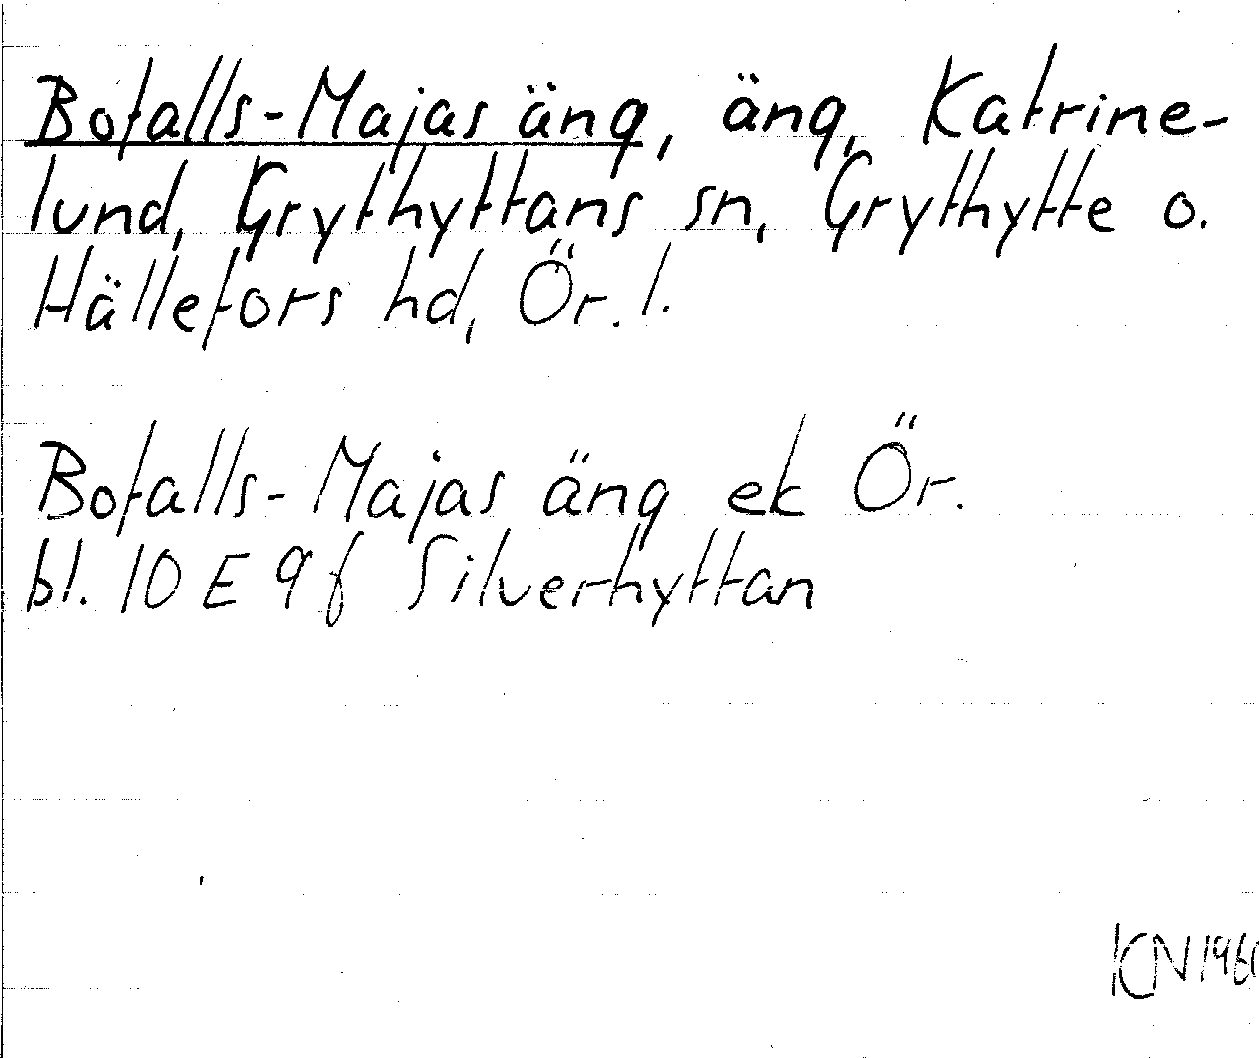 Bofalls-Majas äng, äng, Katrine-
lund, Grythyttans sn, Grythytte o.
Hällefors hd, Ör. l.
Bofalls-Majas äng ek Ör.
bl. 10 E 9 f Silverhyttan
KN